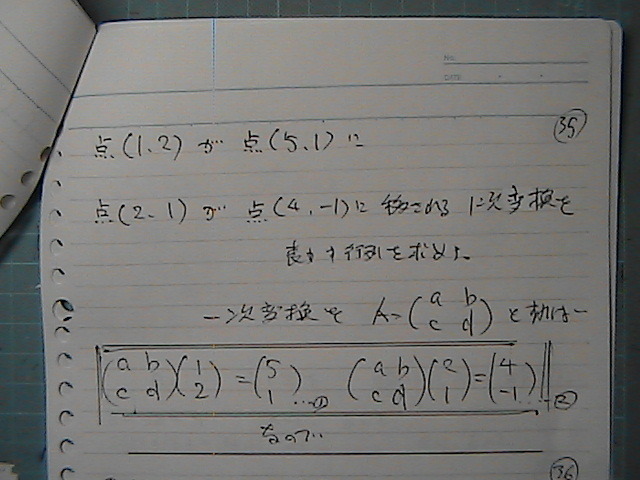 No.
DATE
㉟
点(1.2) が 点(5.1)に
点(2.1) が 点(4.-1)に 移される 1次変換を
表わす行列を求めよ.
一次変換を A=(a b
c d) とすれば
(a b
c d)(1
2)=(5
1)…① (a b
c d)(2
1)=(4
-1)…②
なので
㊱